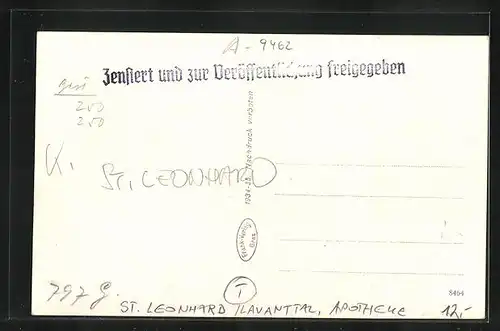 A - 9462
Zensiert und zur Veröffentlichung freigegeben
250
250
K.
St. LEONHARD
Nachdruck verboten
Graz
T
8464
797 G.
ST. LEONHARD / LAVANTTAL, APOTHEKE 12,-